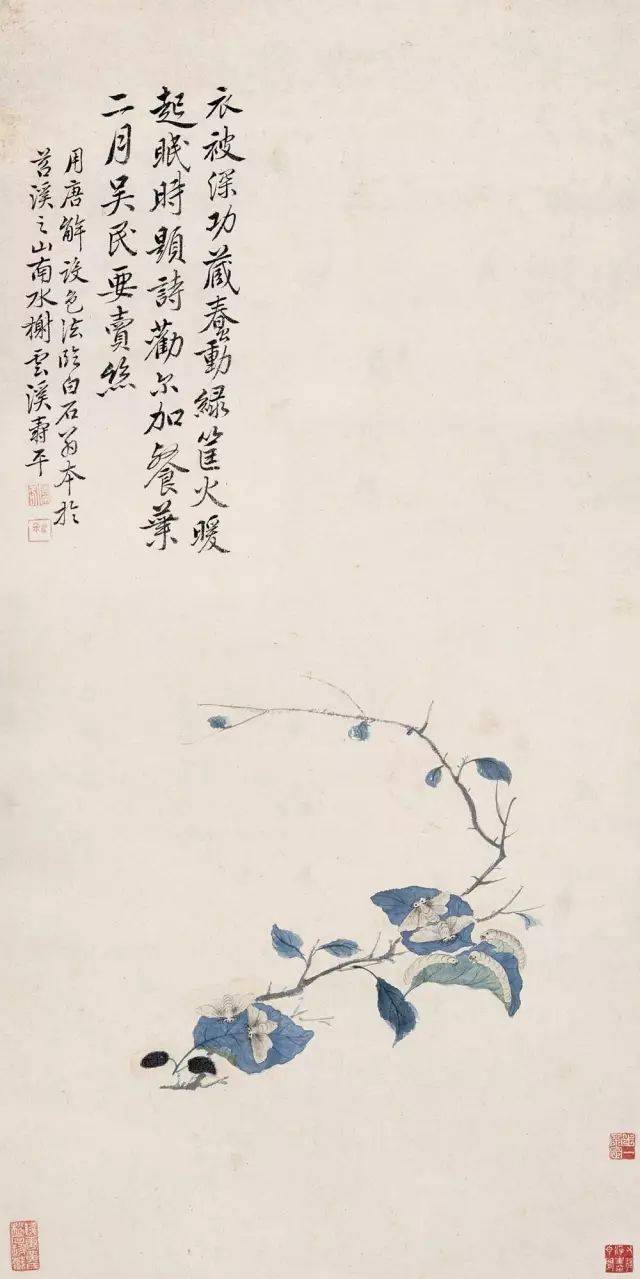 衣被深功藏蠢動綠筐火暖
起眠時題詩勸尔加餐葉
二月吴民要賣絲
用唐解設色法臨白石翁本於
苕溪之山南水榭雲溪壽平